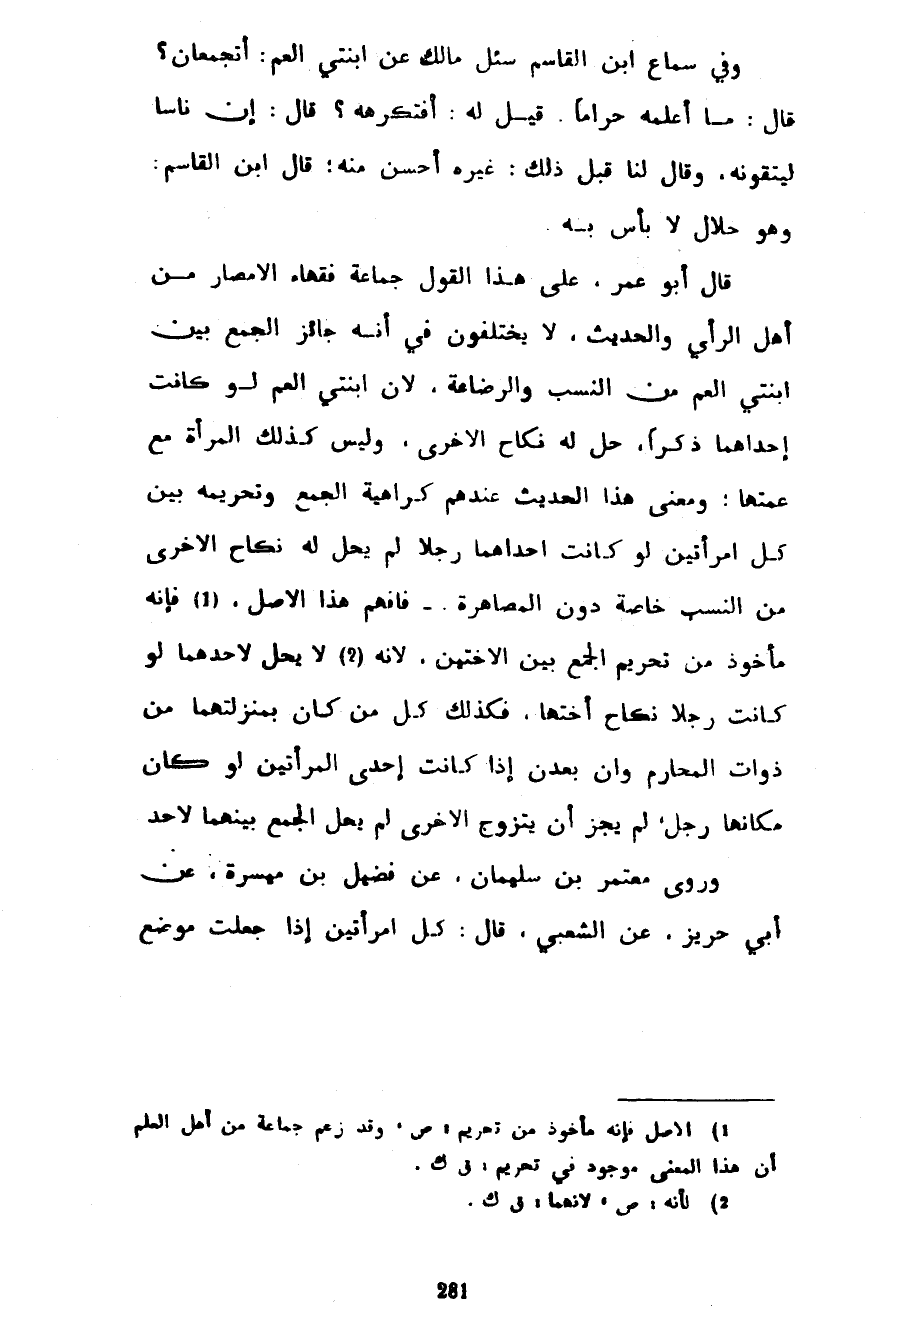 وفي سماع ابن القاسم سئل مالك عن ابنتي العم: أتجمعان؟
قال: ما أعلمه حراماً. قيل له: أفتكرهه؟ قال: إن ناسا
ليتقونه، وقال لنا قبل ذلك: غيره أحسن منه؛ قال ابن القاسم:
وهو حلال لا بأس به.
قال أبو عمر، على هذا القول جماعة فقهاء الامصار من
أهل الرأي والحديث، لا يختلفون في أنه جائز الجمع بين
ابنتي العم من النسب والرضاعة، لان ابنتي العم لو كانت
إحداهما ذكراً، حل له نكاح الاخرى، وليس كذلك المرأة مع
عمتها: ومعنى هذا الحديث عندهم كراهية الجمع وتحريمه بين
كل امرأتين لو كانت احداهما رجلا لم يحل له نكاح الاخرى
من النسب خاصة دون المصاهرة. - فافهم هذا الاصل، (1) فإنه
مأخوذ من تحريم الجمع بين الاختين، لانه (2) لا يحل لاحدهما لو
كانت رجلا نكاح أختها، فكذلك كل من كان بمنزلتهما من
ذوات المحارم وان بعدن إذا كانت إحدى المرأتين لو كان
مكانها رجل، لم يجز أن يتزوج الاخرى لم يحل الجمع بينهما لاحد
وروى معتمر بن سليمان، عن فضيل بن ميسرة، عن
أبي حريز، عن الشعبي، قال: كل امرأتين إذا جعلت موضع
1) الاصل فإنه مأخوذ من تحريم: ص، وقد زعم جماعة من أهل العلم
أن هذا المعنى موجود في تحريم: ق ك.
2) لأنه: ص، لانهما: ق ك.
281